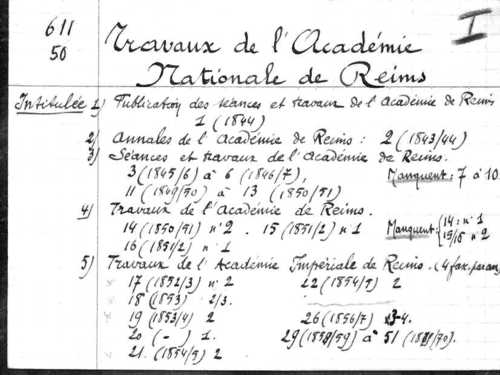 611
50
I
Travaux de l'Académie
Nationale de Reims
Intitulée 1) Publication des séances et travaux de l'Académie de Reims
1 (1844)
2) Annales de l'Académie de Reims : 2 (1843/44)
3) Séances et travaux de l'Académie de Reims.
3 (1845/6) à 6 (1846/7), Manquent: 7 à 10
11 (1849/50) à 13 (1850/51)
4) Travaux de l'Académie de Reims.
14 (1850/51) n° 2. 15 (1851/2) n° 1 Manquent: 14: n° 1
16 (1851/2) n° 1 15/16 n° 2
5) Travaux de l'Académie Impériale de Reims. (4 fax. par an)
17 (1852/3) n° 2 22 (1854/5) 2
18 (1853) 2/3.
19 (1853/4) 2 26 (1856/7) 3-4.
20 ( - ) 1. 29 (1858/59) à 51 (/70).
21. (1854/5) 2